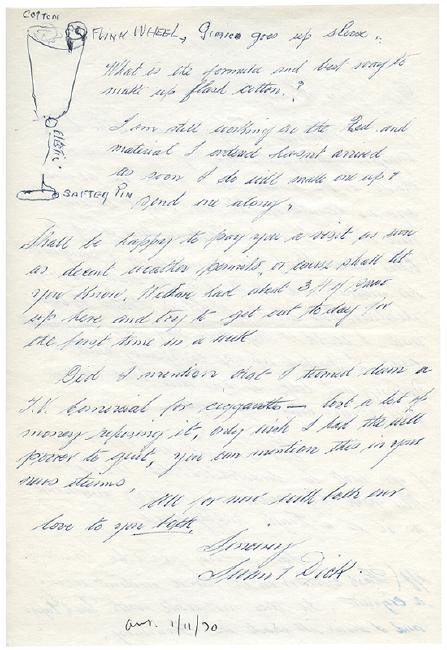 COTTON
FLINK WHEEL, Gimico goes up sleeve.
What is the formula and best way to
make up flash cotton.?
I am still working on the Rod and
material I ordered hasn't arrived
as soon I do will make one up &
ELASTIC.
SAFTER PIN
send one along,
Shall be happy to pay you a visit as soon
as decent weather permits, or course shall let
you know. We have had about 3 ft of snow
up here and try to get out to day for
the first time in a week
Did I mention that I turned down a
T.V. Comercial for ciggaretts — lost a lot of
money refusing it, only wish I had the will
power to quit, you can mention this in your
news items,
All for now with both our
love to you both.
Sincerely
Dick.
ans. 1/11/70